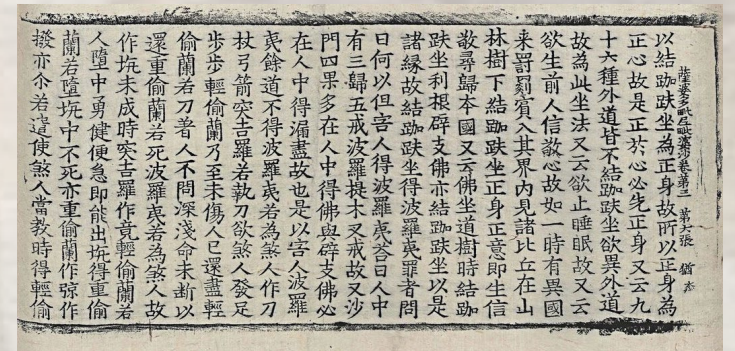 薩婆多毗尼毗婆沙卷第三 第六張 猶
以結跏趺坐為正身故所以正身為
正心故是正於心必先正身又云九
十六種外道皆不結跏趺坐欲異外道
故為此坐法又云欲止睡眠故又云
欲生前人信敬心故如一時有異國
来罰罽賓入其界內見諸比丘在山
林樹下結跏趺坐正身正意即生信
敬尋歸本國又云佛坐道樹時結跏
趺坐利根辟支佛亦結跏趺坐以是
諸緣故結跏趺坐得波羅夷罪者問
曰何以但害人得波羅夷荅曰人中
有三歸五戒波羅提木叉戒故又沙
門四果多在人中得佛與辟支佛必
在人中得漏盡故也是以害人波羅
夷餘道不得波羅夷若為煞人作刀
杖弓箭突吉羅若執刀欲煞人發足
步步輕偷蘭乃至未傷人已還盡輕
偷蘭若刀著人不問深淺命未斷以
還重偷蘭若死波羅夷若為煞人故
作坑未成時突吉羅作竟輕偷蘭若
人墮中勇健便急即能出坑得重偷
蘭若墮坑中不死亦重偷蘭作弶作
撥亦尒若遣使煞人當教時得輕偷